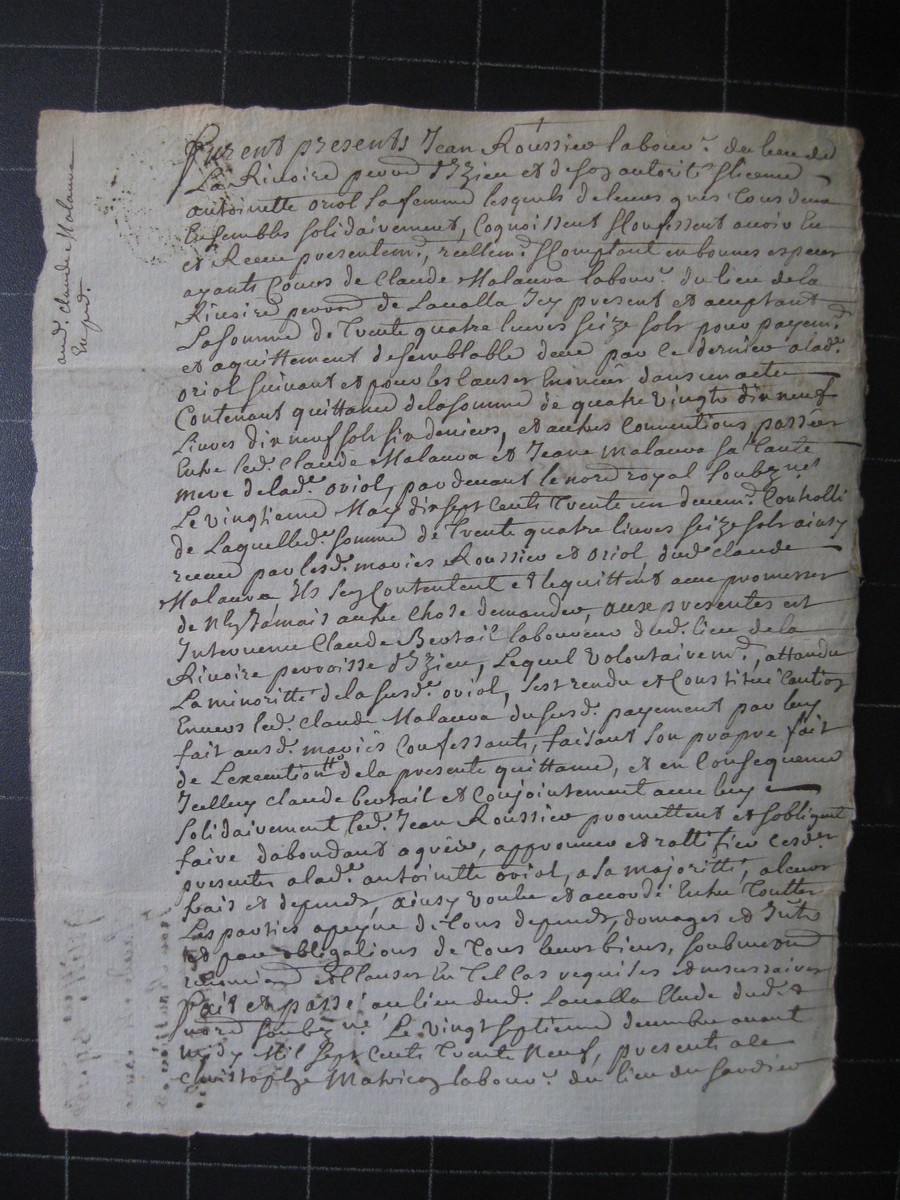 aud. Claude Malauva
Exped.
Furent presents Jean Roussier labour.r du lieu de
La Rivoire parr. d'Izieu et de son autorité licence
antoinette oriol sa femme lesquels de leurs grés tous deux
Ensembles solidairement, Cognoissent Confessent avoir Eu
et Receu presentem.t, reellem.t Comptant en bonnes especes
ayants Cours de Claude Malauva labour.r du lieu de la
Rivoire parr. de Lavalla Icy present et aceptant
La somme de trente quatre livres seize sols pour payem.t
et aquittement de semblable deue par le dernier a lad.e
oriol suivant et pour les Causes Enoncées dans un acte
Contenant quittance de la somme de quatre vingts dix neuf
Livres dix neuf sols six deniers, et autres Conventions passées
Entre led. Claude Malauva et Jeane Malauva sa tante
mere de lad.e oriol, par devant le no.re royal soubz.né
Le vingtieme May dix sept Cents trente un deuem.t Controllé
de Laquelle d. somme de trente quatre livres seize sols ainsy
receue par lesd. mariés Roussier et oriol dud. Claude
Malauva Ils sey Contentent et lequittent avec promesses
de N'ey Jamais autre Chose demander, aux presentes est
Intervenu Claude Bertail laboureur dud. lieu de la
Rivoire parroisse d'Izieu, Lequel volontairem.t, attandu
La minoritté de la susd.e oriol, s'est rendu et Constitué Caution
Envers led. Claude Malauva du susd. payement par luy
fait ausd. mariés Confessants, faisant son propre fait
de L'exemtion de la presente quittance, et en Consequence
Icelluy Claude bertail et Conjointement avec luy
Solidairement led. Jean Roussier promettent et s'obligent
faire d'abondant agréer, approuver et rattifier cesd.es
presentes a lad.e antoinette oriol, a sa majoritté, a leurs
frais et depends, ainsy voulu et accordé Entre touttes
Les parties apeyne de tous depends, domages et Inte.ts
et par obligations de tous leurs biens, soubmission
renonciaõn et Clauses En tel Cas requises et necessaires
Fait et passé au lieu dud. Lavalla Etude dud.
no.re soubz.né, Le vingt septieme decembre avant
midy Mil sept Cents trente Neuf, presents a ce
Christophe Matricon labour.r du lieu du